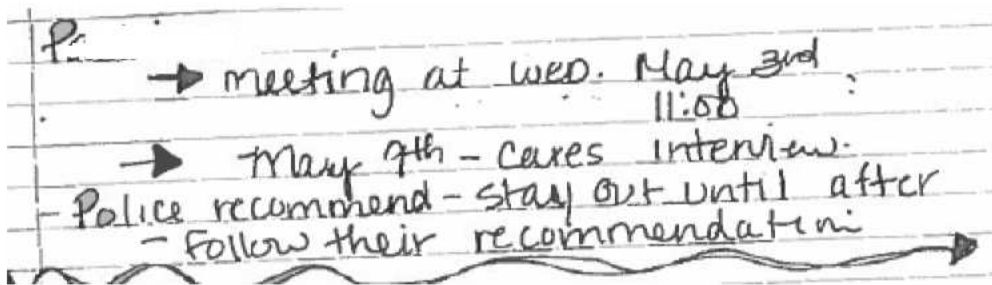 → meeting at WED. May 3rd
11:00
→ May 9th - Cares interview.
- Police recommend - stay out until after
- Follow their recommendation